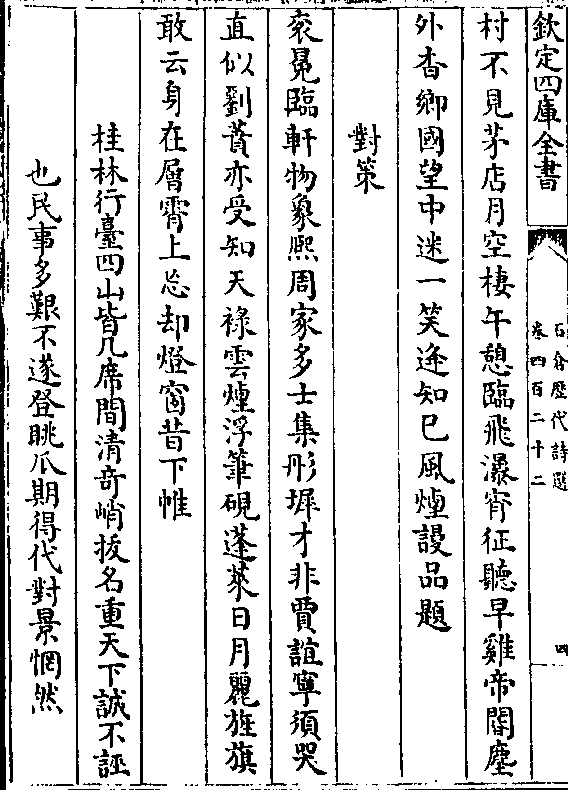 欽定四庫全書
石倉歷代詩選
卷四百二十二
四
村不見茅店月空棲午憩臨飛瀑宵征聽早雞帝閽塵
外杳鄉國望中迷一笑逢知已風煙謾品題
對策
袞冕臨軒物象熈周家多士集彤墀才非賈誼寧須哭
直似劉蕡亦受知天祿雲煙浮筆硯蓬萊日月麗旌旗
敢云身在層霄上忘却燈窗昔下帷
桂林行臺四山皆几席間清竒峭拔名重天下誠不誣
也民事多艱不遂登眺瓜期得代對景惘然